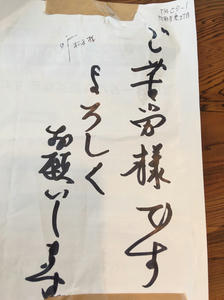 ご苦労様です
よろしく
お願いします